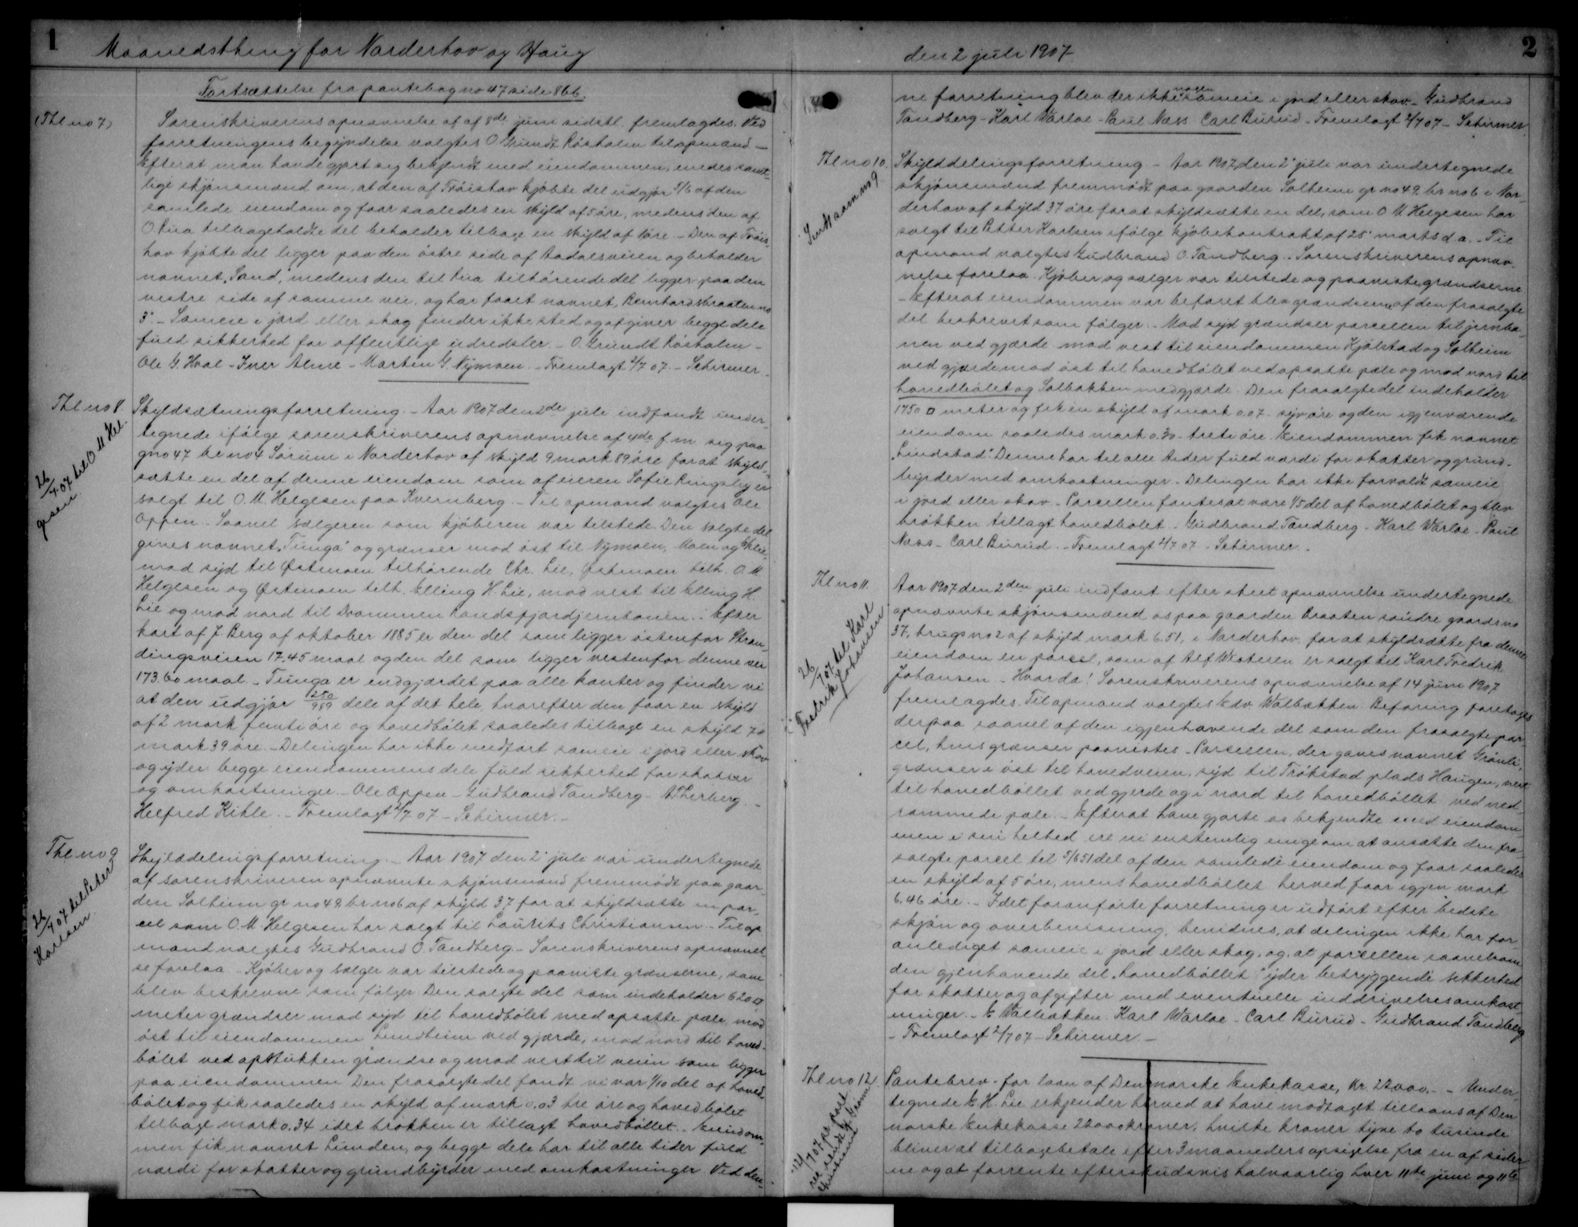 1
Maanedsthing for Norderhov og Haug
den 2 juli 1907
2
Fortsættelse fra pantebog no 47 side 866.
(Thl no 7)
Sorenskriverens opnævnelse af 8de juni sidstl. fremlagdes. Ved
forretningens begyndelse valgtes O. Grundt Röshalm til opmand
Efterat man havde gjort sig bekjendt med eiendommen, enedes samt-
lige skjönsmænd om, at den af Tröishov kjöbte del udgjör 5/6 af den
samlede eiendom og faar saaledes en skyld af 5 öre, medens den af
O. Rua tilbageholdte del beholder tilbage en skyld af 1 öre - Den af Tröis-
hov kjöbte del ligger paa den östre side af Aadalsveien og beholder
navnet "Sand", medens den til Rua tilhörende del ligger paa den
vestre side af samme vei, og har faaet navnet
3 - Sameie i jord eller skog finder ikke sted og afgiver begge dele
fuld sikkerhed for offentlige udredsler - O. Grundt Röshalm -
Ole G. Hval - Iver Alme - Martin G. Nymoen - Fremlagt 2/7 07 - Schirmer
Thl no 8
26/7 07 til O M Hel-
gesen
Skyldsætningsforretning. - Aar 1907 den 2de juli indfandt under-
tegnede ifölge sorenskriverens opnævnelse af 4de f.m. sig paa
gno 47 br no 4 Sörum i Norderhov af skyld 9 mark 89 öre for at skyld-
sætte en del af denne eiendom som af eieren Sofie Ringsby er
solgt til O. M. Helgesen paa Kvernberg - Til opmand valgtes Ole
Oppen. Saavel sælgeren som kjöberen var tilstede. Den solgte del
gives navnet "Tunga" og grænser mod öst til Nymoen, Moen og
mod syd til Östmoen tilhörende Chr. Lie, Östmoen tilh. O. M.
Helgesen og Östmoen tilh. Elling H. Lie, mod vest til Elling H.
Lie og mod nord til Drammen Randsfjordjernbanen. - Efter
kart af J. Berg af oktober 1885 er den del som ligger östenfor Stran-
dingsveien 17,45 maal og den del som ligger vestenfor denne vei
173,60 maal - Tunga er indgjærdet paa alle kanter og finder vi
at den udgjör 250/989 dele af det hele, hvorefter den faar en skyld
af 2 mark femti öre og hovedbölet saaledes tilbage en skyld 7
mark 39 öre - Delingen har ikke medfört sameie i jord eller skov
og yder begge eiendommens dele fuld sikkerhed for skatter
og omkostninger - Ole Oppen - Gudbrand Tandberg
Helfred Kihle - Fremlagt 2/7 07 - Schirmer -
Thl no 9
26/7 07 til Peter
Karlsen
Skylddelingsforretning - Aar 1907 den 2' juli var undertegnede
af sorenskriveren opnævnte skjönsmænd fremmödt paa gaar-
den Solheim gr no 49 br no 6 af skyld 37 for at skyldsætte en par-
cel som O. M. Helgesen har solgt til Laurits Christiansen - Til op-
mand valgtes Gudbrand O. Tandberg - Sorenskriverens opnævnel-
se forelaa - Kjöber og sælger var tilstede og paaviste grænserne, som
blev beskrevne som fölger Den solgte del som indeholder 620 □
meter grænder mod syd til hovedbölet med opsatte pæle, mod
öst til eiendommen Lundheim ved gjærde, mod nord til hoved-
bölet ved opstukken grændse og mod vest til veien som ligger
paa eiendommen Den frasolgte del fandt vi var 1/10 del af hoved-
bölet og fik saaledes en skyld af mark 0.03 tre öre og hovedbölet
tilbage mark 0.34 idet bröken er tillagt hovedböllet. - Eiendom-
men fik navnet Lunden, og begge dele har til alle tider fuld
værdi for skatter og grundbyrder med omkostninger Ved den-
ne forretning blev der ikke voldt sameie i jord eller skov - Gudbrand
Tandberg - Karl Warloe - Paul Næss Carl Burud - Fremlagt 2/7 07 - Schirmer
Thl no 10.
Skylddelingsforretning - Aar 1907, den 2' juli var undertegnede
skjönsmænd fremmödt paa gaarden Solheim gr no 49 br no 6 i Nor-
derhov af skyld 37 öre for at skyldsætte en del, som O. M. Helgesen har
solgt til Petter Karlsen ifölge kjöbekontrakt af 25' marts d.a. - Til
opmand valgtes Gudbrand O. Tandberg. Sorenskriverens opnæv-
nelse forelaa. Kjöber og sælger var tilstede og paaviste grændserne
- Efterat eiendommen var befaret blev grændserne af den frasolgte
del beskrevet som fölger. - Mod syd grændser parcellen til jernba-
nen ved gjærde mod vest til eiendommen Kjölstad og Solheim
ved gjærde mod öst til hovedbölet ved opsatte pæle og mod nord til
hovedbölet og Solbakken med gjærde. Den frasolgte del indeholder
1750 □ meter og fik en skyld af mark 0.07 syv öre og den igjenværende
eiendom saaledes mark 0.30 - treti öre. Eiendommen fik navnet
"Lundstad". Denne har til alle tider fuld værdi for skatter og grund-
byrder med omkostninger. Delingen har ikke forvoldt sameie
i jord eller skov. - Parcellen fantes at være 1/5 del af hovedbölet og blev
bröken tillagt hovedbölet. - Gudbrand Tandberg - Karl Warloe - Paul
Næss - Carl Burud. - Fremlagt 2/7 07 - Schirmer.
Thl no 11
26/7 07 til Karl
Fredrik Johansen
Aar 1907 den 2den juli indfant efter skeet opnævnelse undertegnede
opnævnte skjönsmænd os paa gaarden Braaten söndre gaardsno
37, brugsno 2 af skyld mark 6.51, i Norderhov, for at skyldsætte fra denne
eiendom en parcel, som af Alf Westeren er solgt til Karl Fredrik
Johansen - Hvorda! Sorenskriverens opnævnelse af 14 juni 1907
fremlagdes. Til opmand valgtes Edv. Walbækken Befaring foretoges
derpaa saavel af den igjenhavende del som den frasolgte par-
cel, hvis grænser paavistes. Parcellen, der gaves navnet Grönli,
grænser i öst til hovedveien, syd til Tröhstad plads Haugen, vest
til hovedböllet ved gjerde og i nord til hovedböllet ved ned-
rammede pæle. - Efterat have gjorte os bekjendte med eiendom-
men i sin helhed ere vi enstemtig enige om at ansætte den fra-
solgte parcel til 5/651 del af den samlede eiendom og faar saaledes
en skyld af 5 öre, mens hovedböllet herved faar igjen mark
6.46 öre. - Idet foranförte forretning er udfört efter bedste
skjön og overbevisning, bevidnes, at delingen ikke har for-
anlediget sameie i jord eller skog, og at parcellen saavelsom
den gjenhavende del "hovedböllet" yder betryggende sikkerhed
for skatter og afgifter med eventuelle inddrivelsesomkost-
ninger. - E Walbækken - Karl Warloe - Carl Burud - Gudbrand Tandberg
- Fremlagt 2/7 07 - Schirmer -
Thl no 12
Pantebrev for laan af Den norske Enkekasse, kr. 22000.- - Under-
tegnede E. H. Lie erkjender herved at have modtaget tillaans af Den
norske Enkekasse 22000 kroner, hvilke kroner tyve to tusinde
bliver at tilbagebetale efter 3 maaneders opsigelse fra en af sider-
ne og at forrente efterskudsvis halvaarlig hver 11te juni og 11te